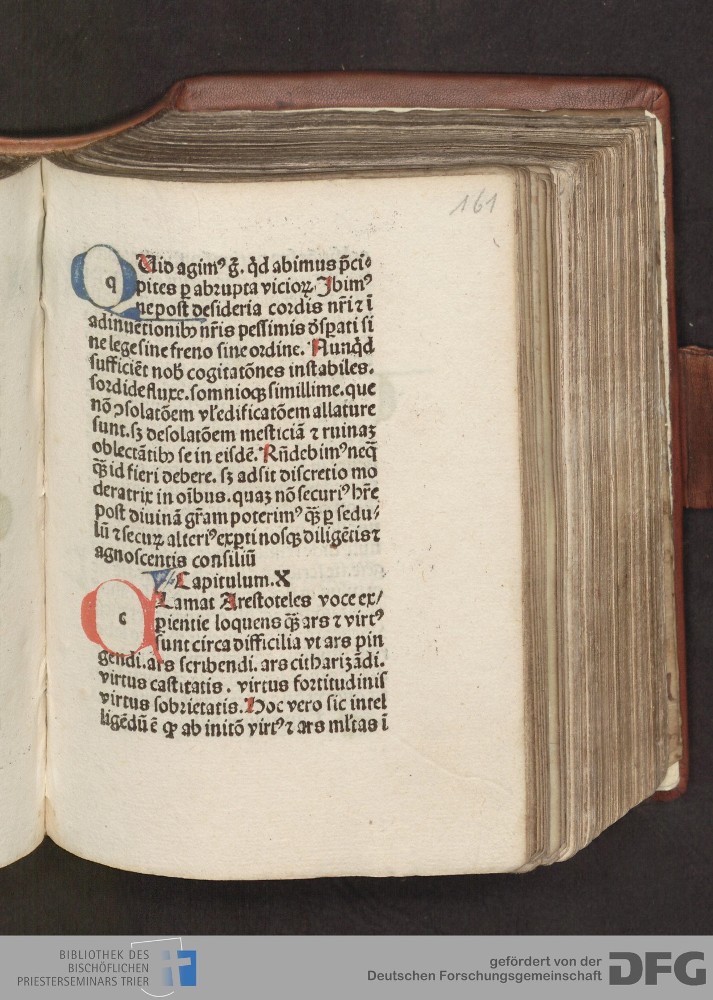 161
QUid agimꝰ g̃. qd̓ abimus p̃ci-
pites ꝑ abrupta vicioꝝ. Ibimꝰ
ne post desideria cordis nr̃i ⁊ ĩ
adinuẽtionibꝫ nr̃is pessimis dʼspati si
ne lege sine freno sine ordine. Nunqd̓
sufficiẽt nobʼ cogitatõnes instabiles.
sordide fluxe. somnioqꝫ simillime. que
nõ ꝯsolatõem vlʼ edificatõem allature
sunt. sꝫ desolatõem mesticiã ⁊ ruinaꝫ
oblectãtibꝫ se in eisdẽ. Rñdebimꝰ neqꝫ̃
qꝫ̃ id fieri debere. sꝫ adsit discretio mo
deratrix in oĩbus. quaꝫ nõ securiꝰ hr̃e
post diuinã gr̃am poterimꝰ qꝫ̃ ꝑ sedu-
lũ ⁊ secuꝝ alteriꝰ exꝑti nosqꝫ diligẽtis ⁊
agnoscentis consiliũ
Capitulum. X
CLamat Arestoteles voce ex/
pientie loquens qꝫ̃ ars ⁊ virtꝰ
sunt circa difficilia vt ars pin
gendi. ars scribendi. ars citharizãdi.
virtus castitatis. virtus fortitudinis
virtus sobrietatis. Hoc vero sic intel
ligẽdũ ẽ ꝙ ab initõ virtꝰ ⁊ ars ml̓tas ĩ
BIBLIOTHEK DES
BISCHÖFLICHEN
PRIESTERSEMINARS TRIER
gefördert von der
Deutschen Forschungsgemeinschaft
DFG